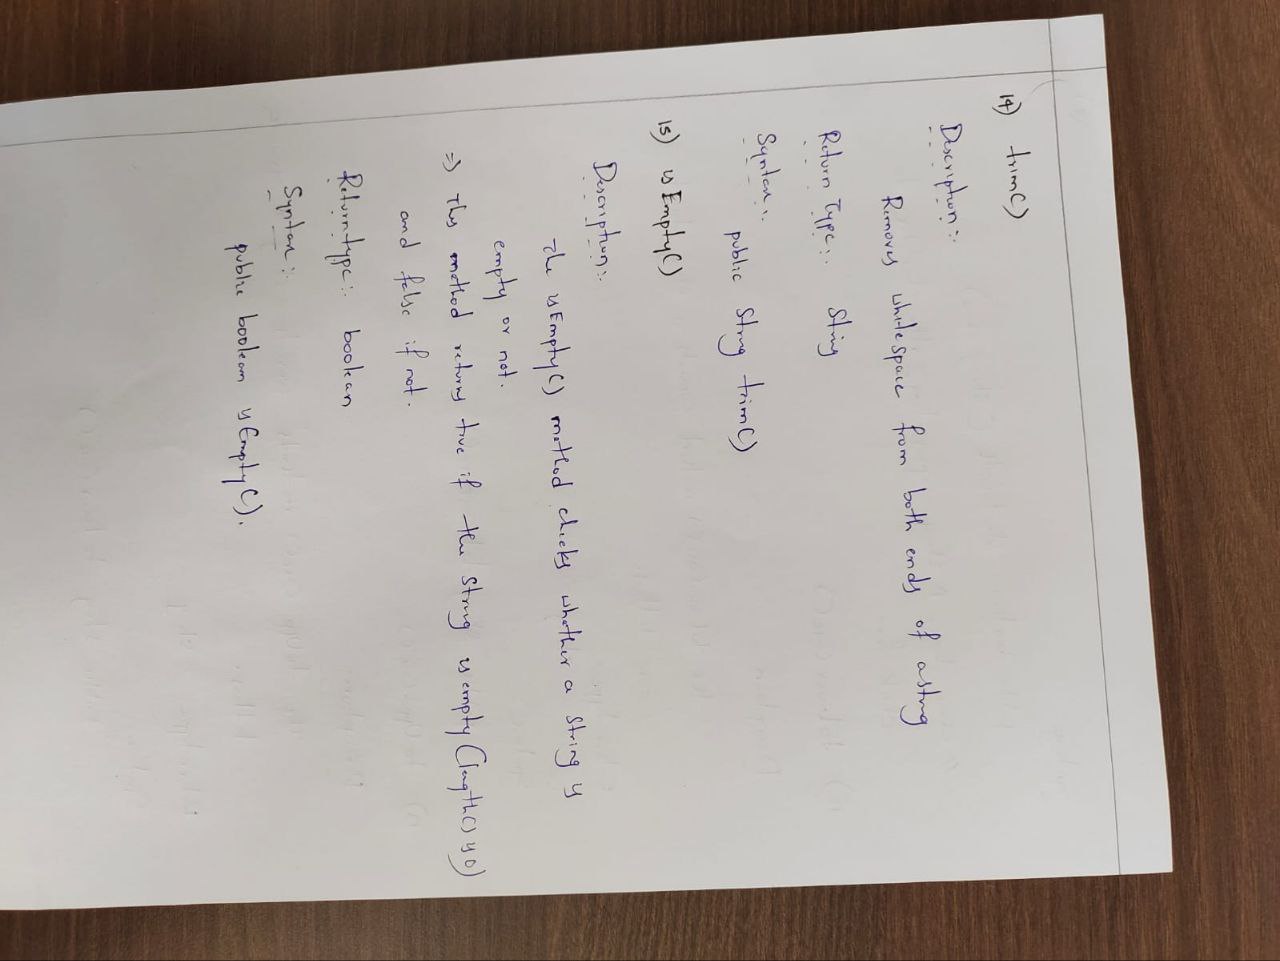 14) trim()
Description :-
Removes whitespace from both ends of a string
Return Type :- String
Syntax :-
public String trim()
15) isEmpty()
Description :-
the isEmpty() method checks whether a string is
empty or not.
=) This method returns true if the string is empty (length() is 0)
and false if not.
Return type :- boolean
Syntax :-
public boolean isEmpty().